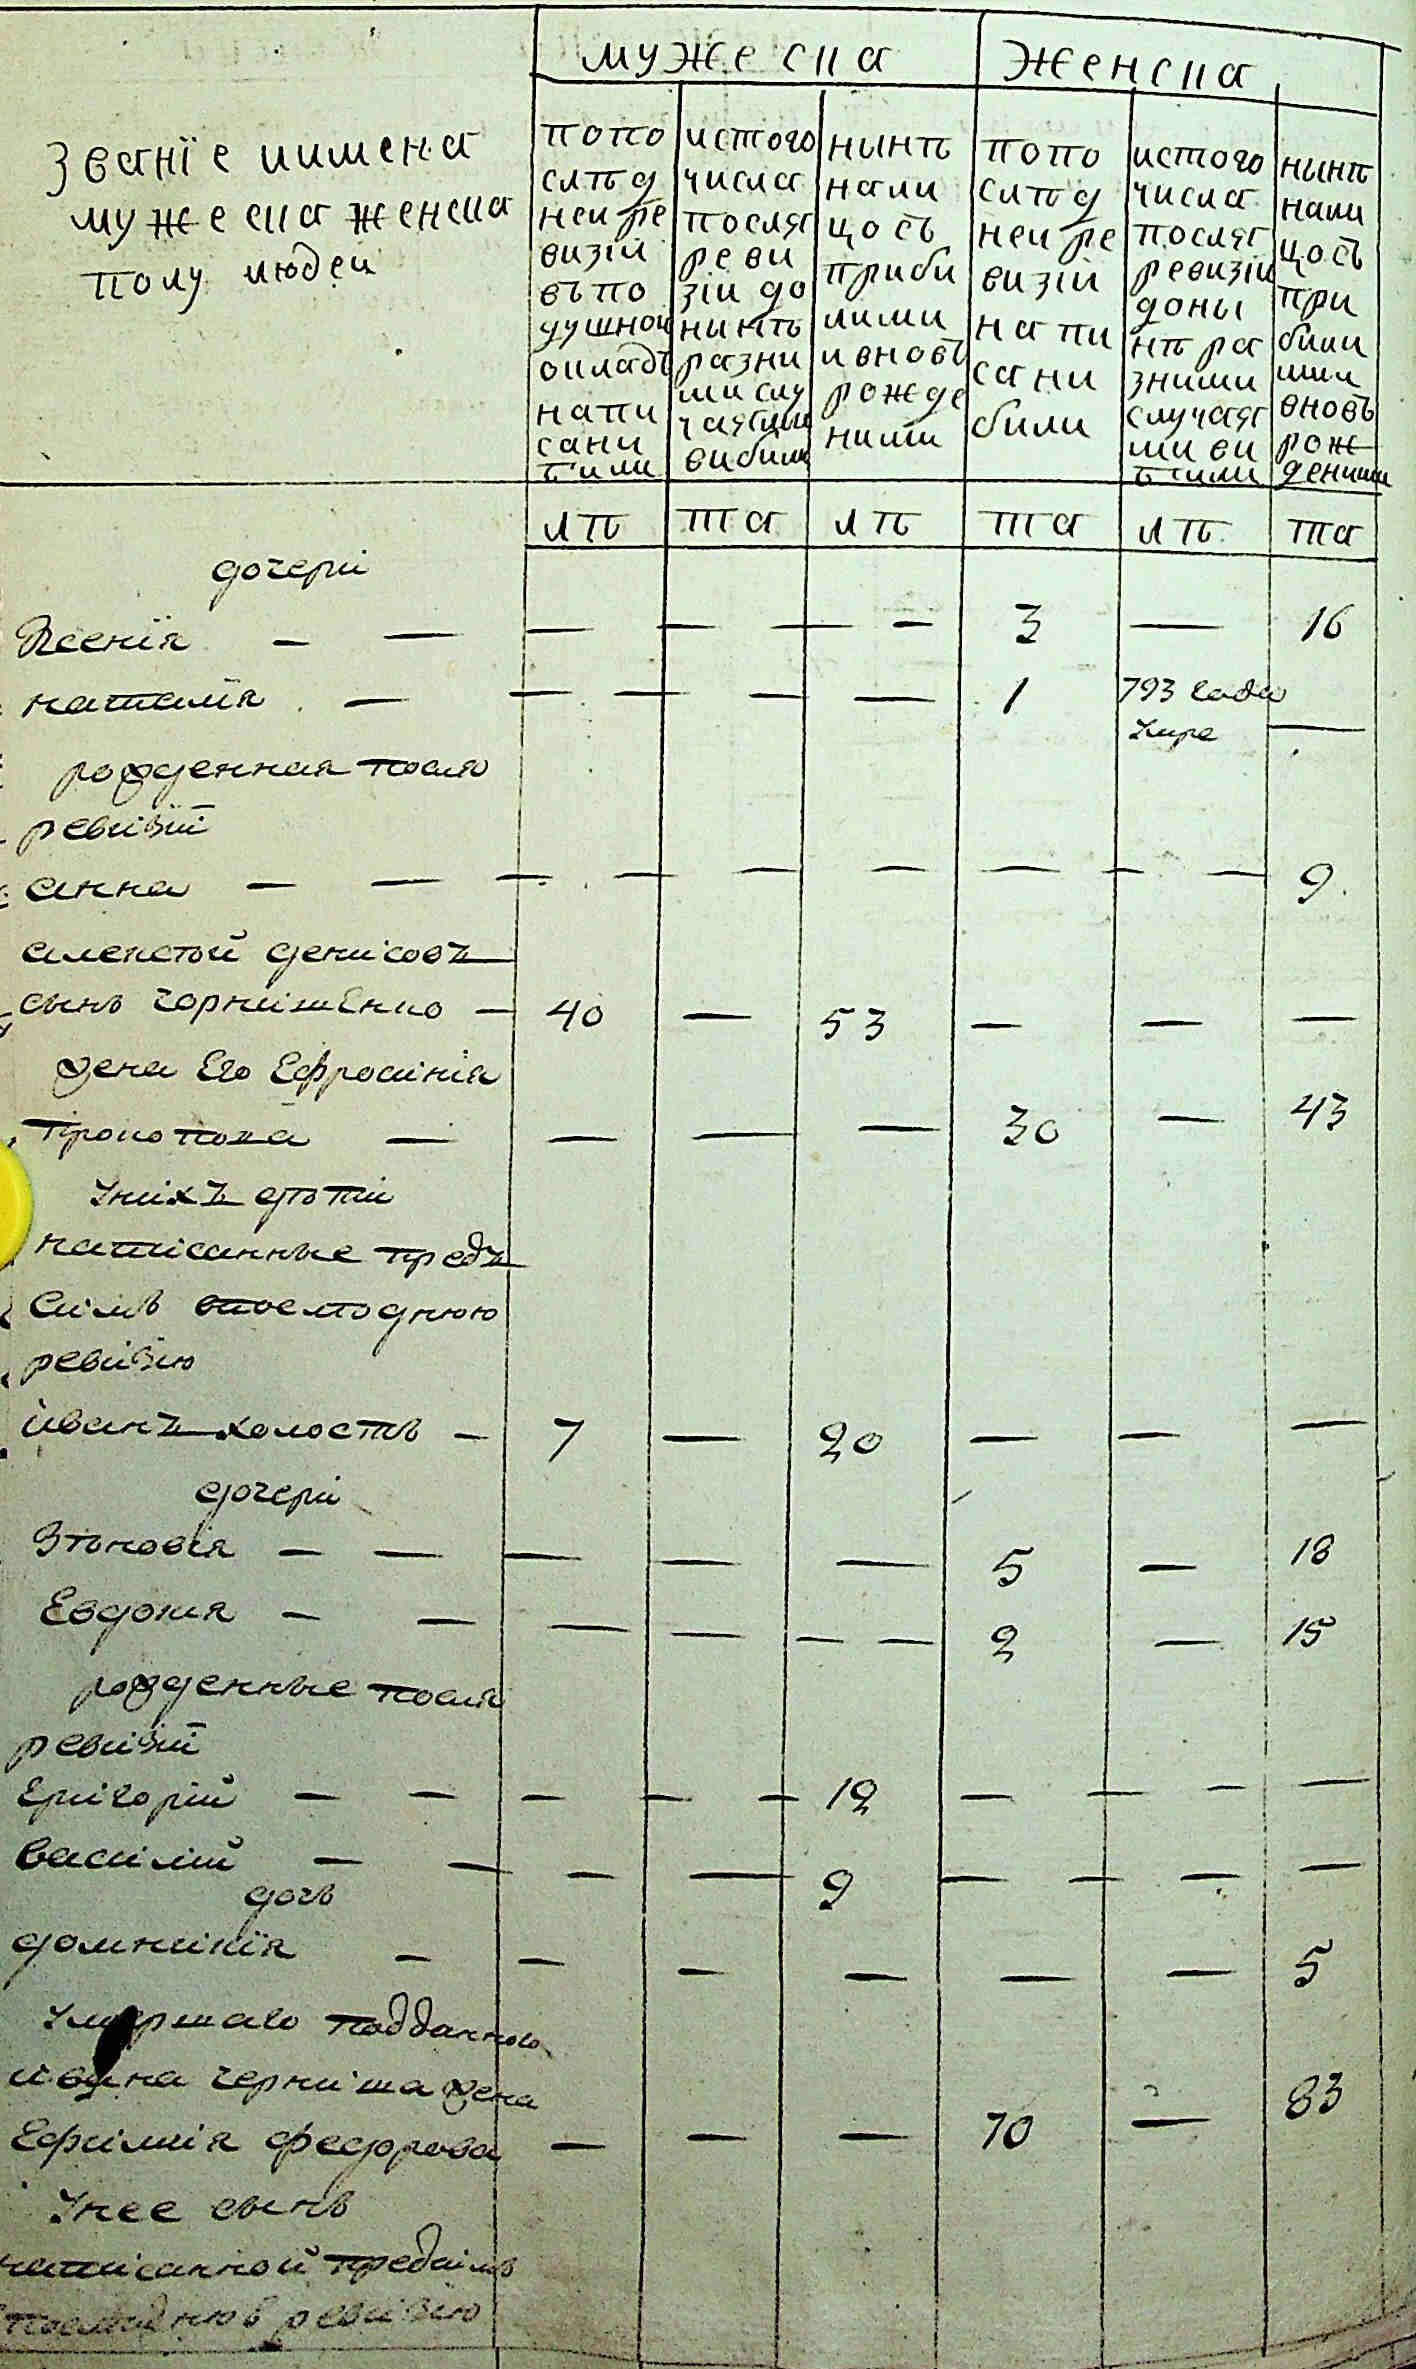 мужеска женска
Званїе иимена
мужескаженска
полу людей
попо
слѣд
неи ре
визіи
въпо
душнои
окладъ
напи
сани
били
истого
числа
посля
реви
зіи до
нинѣ
разни
ми слу
чаями
вибили
нынѣ
нали
цось
приби
лими
ивновъ
рожде
ними
попо
слѣд
неи ре
визіи
напи
сани
били
истого
числа
посля
ревизіи
доны
нѣ ра
зними
случая
ми ви
били
нынѣ
нали
цось
при
били
ми
вновъ
рож
деними
лѣ та лѣ та лѣ та
дочери
Ксенїя — — — — — — 3 — 16
наталія — — — — — 1 793 года
умре —
рожденная посля
ревизіи
анна — — — — — — — — — 9
алексѣй денисовъ
сынъ чорнишенко — 40 — 53 — — —
жена Его Ефросинія
прокопова — — — — 30 — 43
унихъ дѣти
написанные предъ
симъ впослѣднюю
ревизію
иванъ холостъ — 7 — 20 — — —
дочери
Зѣновія — — — — — 5 — 18
Евдокия — — — — — — 2 — 15
рожденные посля
ревизіи
Григорій — — — — — 12 — — — —
василій — — — — 9 — — — —
дочь
домникїя — — — — — — 5
умершаго подданного
ивана черниша жена
Ефимия федорова — — — 70 — 83
унее сынъ
написанной предсимъ
впослѣднюю ревизію